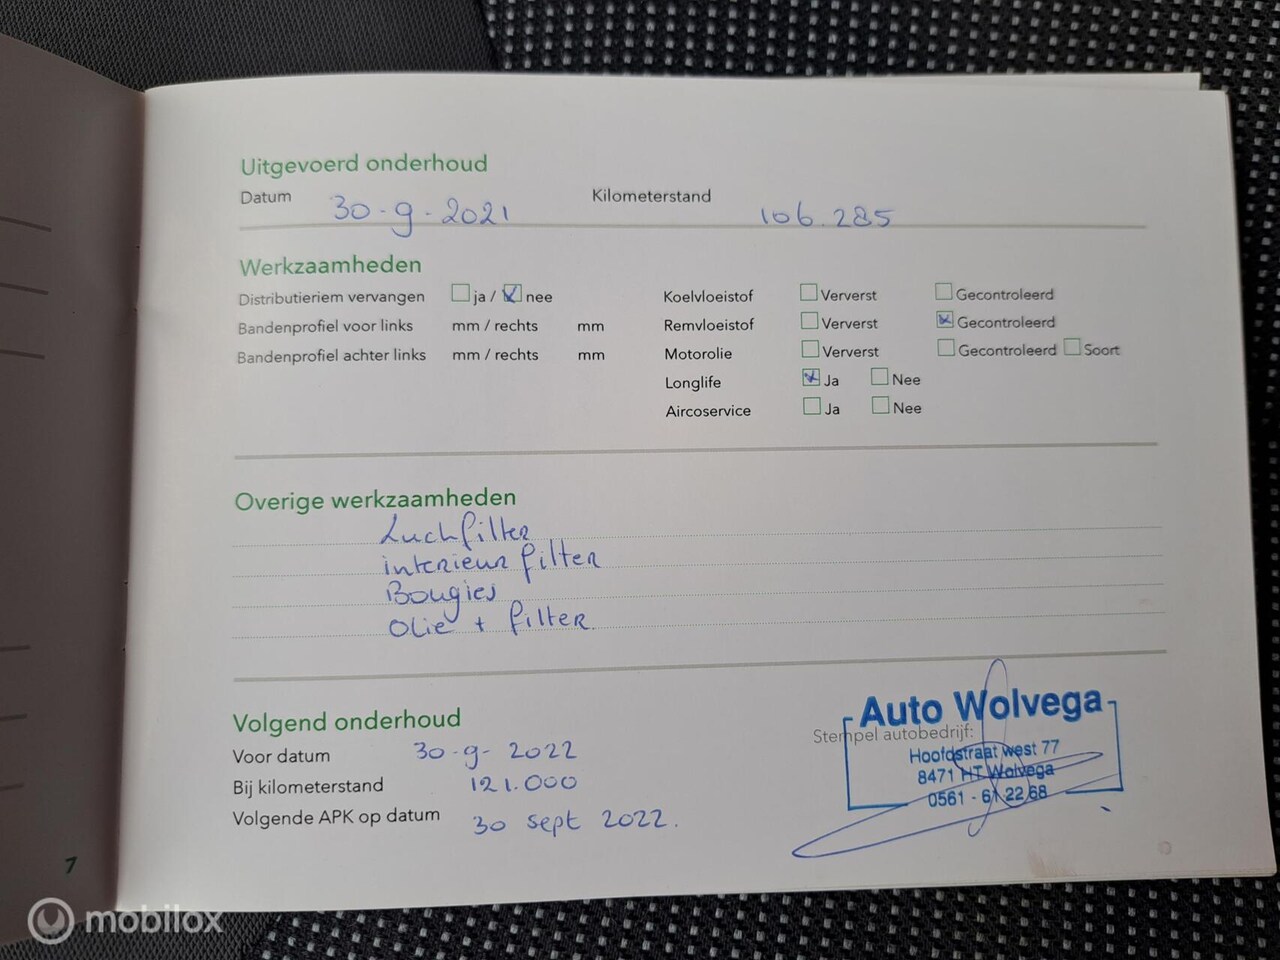 Uitgevoerd onderhoud
Datum 30-9-2021 Kilometerstand 106.285
Werkzaamheden
Distributieriem vervangen ja / nee
Bandenprofiel voor links mm / rechts mm
Bandenprofiel achter links mm / rechts mm
Koelvloeistof Ververst Gecontroleerd
Remvloeistof Ververst Gecontroleerd
Motorolie Ververst Gecontroleerd Soort
Longlife Ja Nee
Aircoservice Ja Nee
Overige werkzaamheden
Luchfilter
interieur filter
Bougies
Olie + filter
Volgend onderhoud
Voor datum 30-9-2022
Bij kilometerstand 121.000
Volgende APK op datum 30 sept 2022.
Auto Wolvega
Stempel autobedrijf:
Hoofdstraat west 77
8471 HT Wolvega
0561 - 61 22 68
7
mobilox